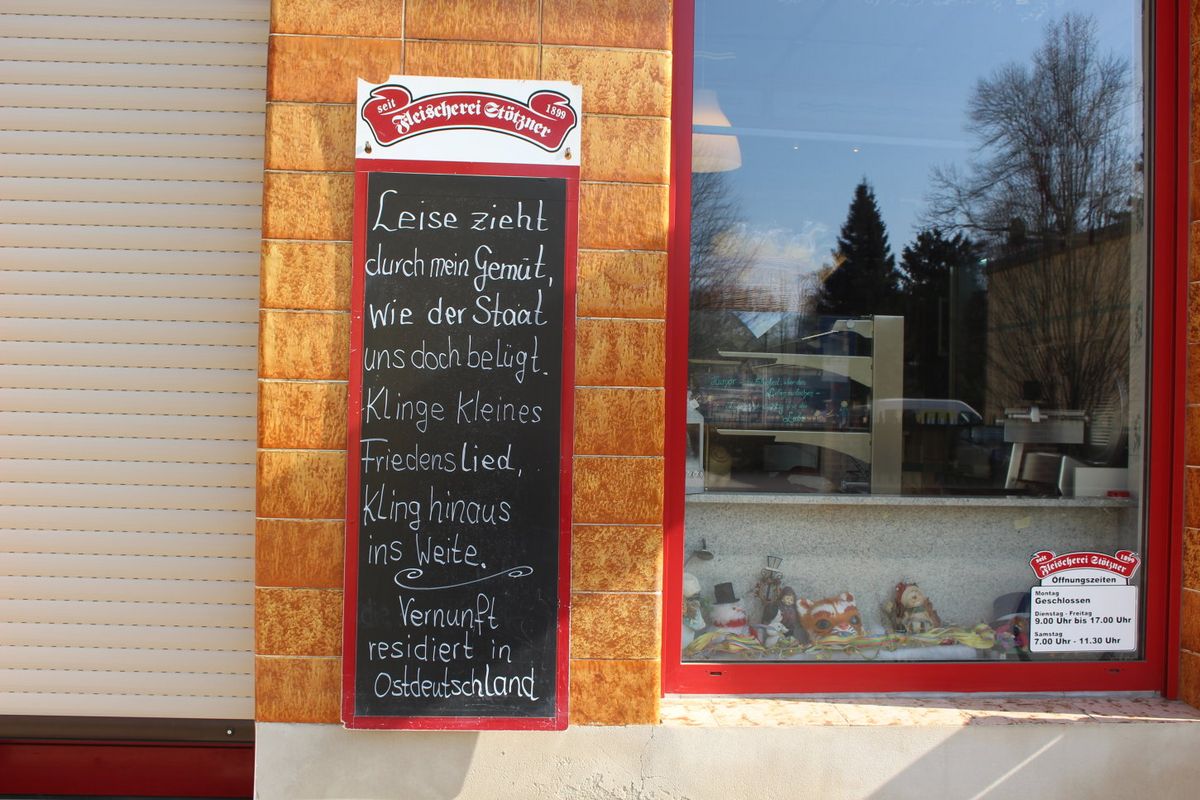 seit Fleischerei Stötzner 1899
Leise zieht
durch mein Gemüt,
wie der Staat
uns doch belügt.
Klinge kleines
Friedenslied,
Kling hinaus
ins Weite.
Vernunft
residiert in
Ostdeutschland
seit Fleischerei Stötzner 1899
Öffnungszeiten
Montag
Geschlossen
Dienstag - Freitag
9.00 Uhr bis 17.00 Uhr
Samstag
7.00 Uhr - 11.30 Uhr